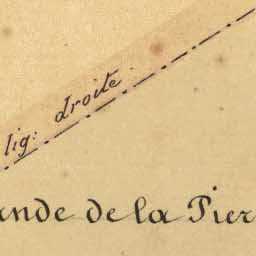 lig: droite.
ande de la Pier